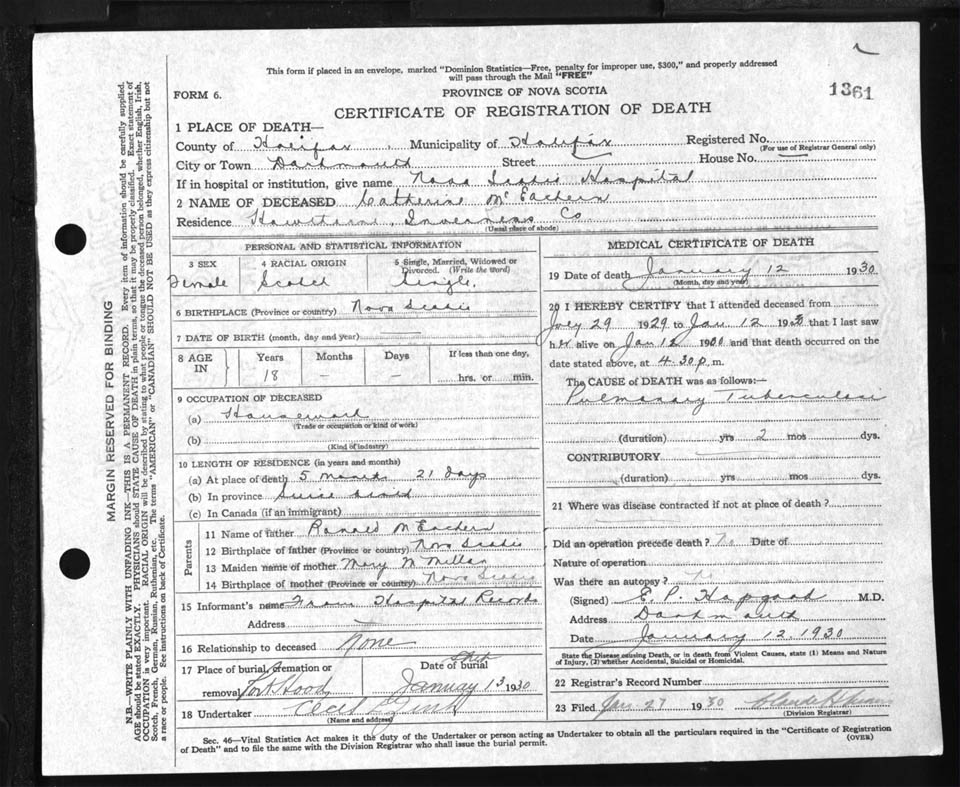 This form if placed in an envelope, marked "Dominion Statistics—Free, penalty for improper use, $300," and properly addressed
will pass through the Mail "FREE"
FORM 6.
PROVINCE OF NOVA SCOTIA
1361
CERTIFICATE OF REGISTRATION OF DEATH
1 PLACE OF DEATH—
County of Halifax Municipality of Halifax Registered No.
(For use of Registrar General only)
City or Town Dartmouth Street House No.
If in hospital or institution, give name Nova Scotia Hospital
2 NAME OF DECEASED Catherine McEachern
Residence Hawthorne, Inverness Co
(Usual place of abode)
PERSONAL AND STATISTICAL INFORMATION
3 SEX
Female
4 RACIAL ORIGIN
Scotch
5 Single, Married, Widowed or Divorced. (Write the word)
Single
6 BIRTHPLACE (Province or country) Nova Scotia
7 DATE OF BIRTH (month, day and year)
8 AGE IN
Years Months Days If less than one day,
18 — — hrs. or min.
9 OCCUPATION OF DECEASED
(a) Housework
(Trade or occupation or kind of work)
(b)
(Kind of industry)
10 LENGTH OF RESIDENCE (in years and months)
(a) At place of death 5 months 21 days
(b) In province Since
(c) In Canada (if an immigrant)
Parents
11 Name of father Ronald McEachern
12 Birthplace of father (Province or country) Nova Scotia
13 Maiden name of mother Mary McMillan
14 Birthplace of mother (Province or country) Nova Scotia
15 Informant's name From Hospital Records
Address
16 Relationship to deceased None
17 Place of burial, cremation or
removal Port Hood
Date of burial
January 13 1930
18 Undertaker Cecil Zink
(Name and address)
MEDICAL CERTIFICATE OF DEATH
19 Date of death January 12 1930
(Month, day and year)
20 I HEREBY CERTIFY that I attended deceased from
July 29 1929 to Jan 12 1930 that I last saw
her alive on Jan 12 1930 and that death occurred on the
date stated above, at 4.30 p. m.
The CAUSE of DEATH was as follows:—
Pulmonary Tuberculosis
(duration) yrs 2 mos dys.
CONTRIBUTORY
(duration) yrs. mos dys.
21 Where was disease contracted if not at place of death?
Did an operation precede death? No Date of
Nature of operation
Was there an autopsy? No
(Signed) E. P. Hapgood M.D.
Address Dartmouth
Date January 12. 1930
State the Disease causing Death, or in death from Violent Causes, state (1) Means and Nature
of Injury, (2) whether Accidental, Suicidal or Homicidal.
22 Registrar's Record Number
23 Filed Jan. 27 1930
(Division Registrar)
Sec. 46—Vital Statistics Act makes it the duty of the Undertaker or person acting as Undertaker to obtain all the particulars required in the "Certificate of Registration
of Death" and to file the same with the Division Registrar who shall issue the burial permit.
(OVER)
MARGIN RESERVED FOR BINDING
N.B.—WRITE PLAINLY WITH UNFADING INK—THIS IS A PERMANENT RECORD. Every item of information should be carefully supplied.
AGE should be stated EXACTLY. PHYSICIANS should STATE CAUSE OF DEATH in plain terms, so that it may be properly classified. Exact statement of
OCCUPATION is very important. RACIAL ORIGIN will be described by stating to what people or tongue the deceased person belonged, whether English, Irish,
Scotch, French, German, Russian, Ruthenian, etc. The terms "AMERICAN" or "CANADIAN" SHOULD NOT BE USED as they express citizenship but not
a race or people. See instructions on back of Certificate.